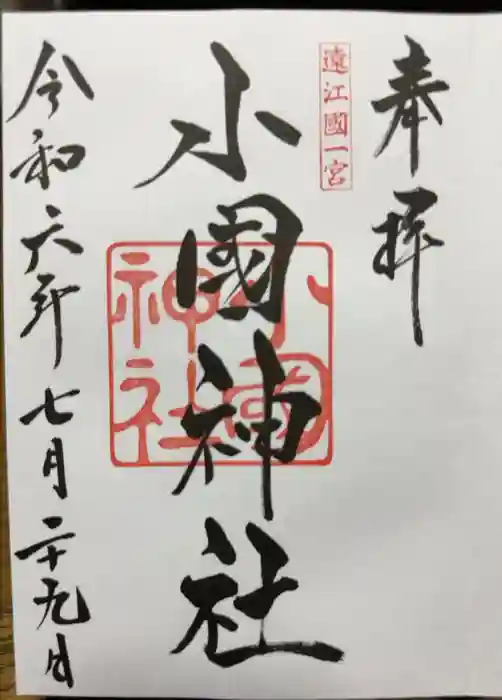 奉拝
遠江國一宮
小國神社
小國神社
令和六年七月二十九日